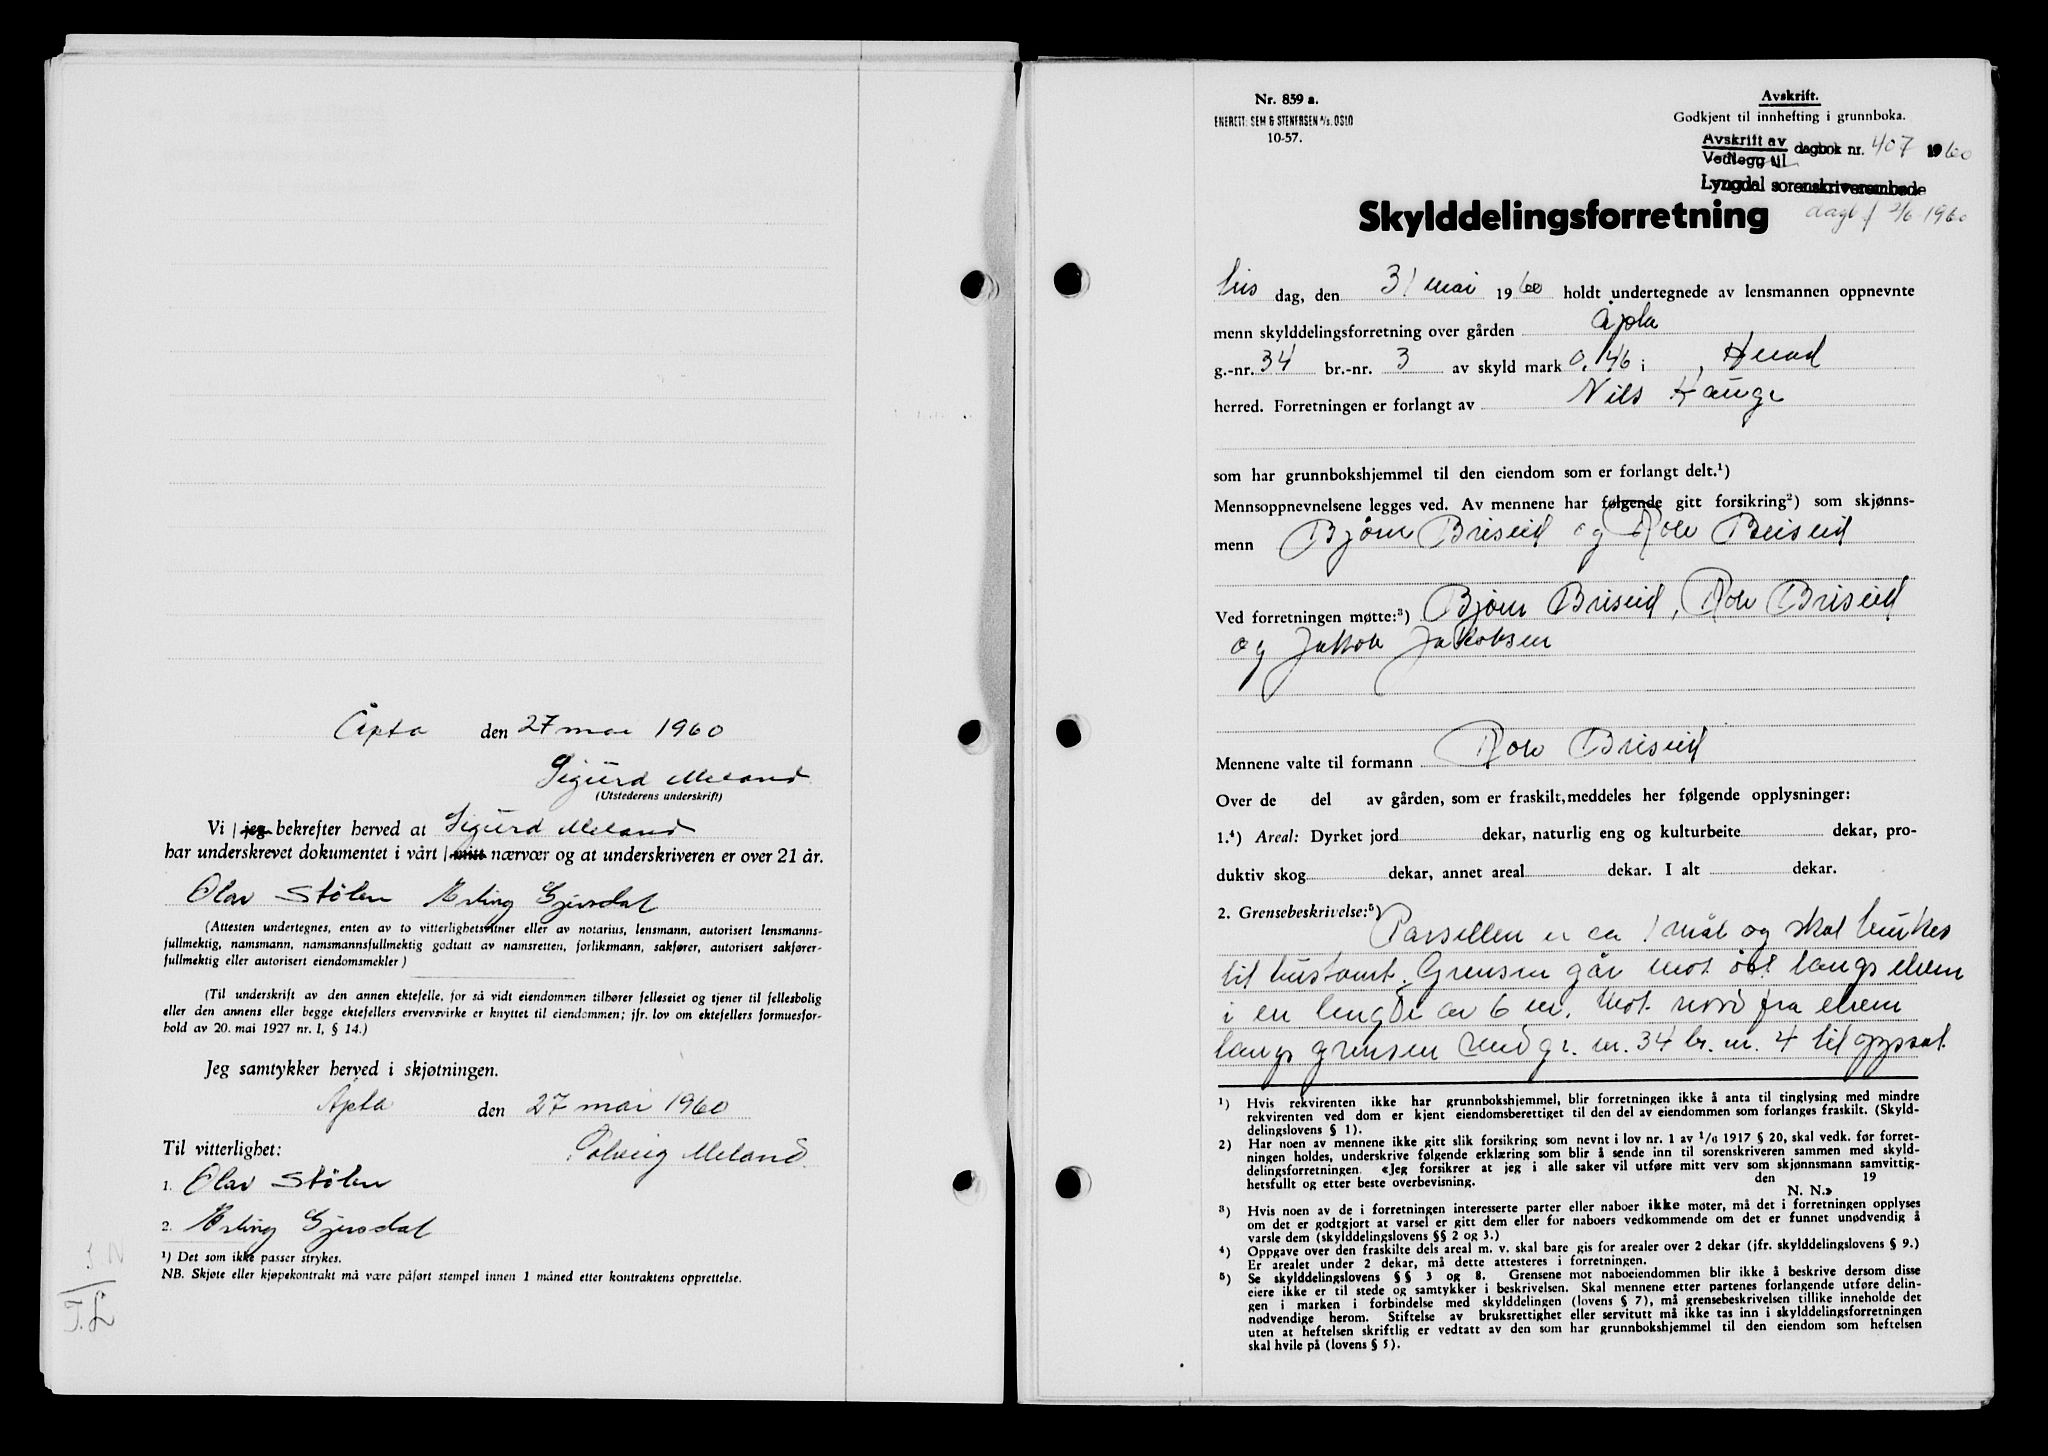 Åpta den 27 mai 1960
Sigurd Meland
(Utstederens underskrift)
Vi / jeg bekrefter herved at Sigurd Meland
har underskrevet dokumentet i vårt / mitt nærvær og at underskriveren er over 21 år.
Olav Stølen Erling Gjersdal
(Attesten undertegnes, enten av to vitterlighetsvitner eller av notarius, lensmann, autorisert lensmanns-
fullmektig, namsmann, namsmannsfullmektig godtatt av namsretten, forliksmann, sakfører, autorisert sakfører-
fullmektig eller autorisert eiendomsmekler)
(Til underskrift av den annen ektefelle, for så vidt eiendommen tilhører felleseiet og tjener til fellesbolig
eller den annens eller begge ektefellers ervervsvirke er knyttet til eiendommen; jfr. lov om ektefellers formuesfor-
hold av 20. mai 1927 nr. 1, § 14.)
Jeg samtykker herved i skjøtningen.
Åpta den 27 mai 1960
Til vitterlighet: Solveig Meland
1. Olav Stølen
2. Erling Gjersdal
¹) Det som ikke passer strykes.
NB. Skjøte eller kjøpekontrakt må være påført stempel innen 1 måned etter kontraktens opprettelse.
T.L
Nr. 859 a.
ENERETT: SEM & STENERSEN A/S. OSLO
10-57.
Avskrift.
Godkjent til innhefting i grunnboka.
Avskrift av
Vedlegg til dagbok nr. 407 1960
Lyngdal sorenskriverembede
Skylddelingsforretning
dagbf 2/6 1960
Tirs dag, den 31 mai 1960 holdt undertegnede av lensmannen oppnevnte
menn skylddelingsforretning over gården Åpta
g.-nr. 34 br.-nr. 3 av skyld mark 0,46 i Herad
herred. Forretningen er forlangt av Nils Hauge
som har grunnbokshjemmel til den eiendom som er forlangt delt.¹)
Mennsoppnevnelsene legges ved. Av mennene har følgende gitt forsikring²) som skjønns-
menn Bjørn Briseid og Rolv Briseid
Ved forretningen møtte:³) Bjørn Briseid, Rolv Briseid
og Jakob Jakobsen
Mennene valte til formann Rolv Briseid
Over de del av gården, som er fraskilt, meddeles her følgende opplysninger:
1.⁴) Areal: Dyrket jord dekar, naturlig eng og kulturbeite dekar, pro-
duktiv skog dekar, annet areal dekar. I alt dekar.
2. Grensebeskrivelse:⁵)
Parsellen er ca 1 mål og skal brukes
til hustomt. Grensen går mot øst langs elven
i en lengde av 6 m. Mot nord fra elven
langs grensen med gr. nr. 34 br. nr. 4 til oppsat
¹) Hvis rekvirenten ikke har grunnbokshjemmel, blir forretningen ikke å anta til tinglysing med mindre
rekvirenten ved dom er kjent eiendomsberettiget til den del av eiendommen som forlanges fraskilt. (Skyld-
delingslovens § 1).
²) Har noen av mennene ikke gitt slik forsikring som nevnt i lov nr. 1 av 1/6 1917 § 20, skal vedk. før forret-
ningen holdes, underskrive følgende erklæring som blir å sende inn til sorenskriveren sammen med skyld-
delingsforretningen. «Jeg forsikrer at jeg i alle saker vil utføre mitt verv som skjønnsmann samvittig-
hetsfullt og etter beste overbevisning. den 19
N. N.»
³) Hvis noen av de i forretningen interesserte parter eller naboer ikke møter, må det i forretningen opplyses
om det er godtgjort at varsel er gitt dem eller for naboers vedkommende om det er funnet unødvendig å
varsle dem (skylddelingslovens §§ 2 og 3.)
⁴) Oppgave over den fraskilte dels areal m. v. skal bare gis for arealer over 2 dekar (jfr. skylddelingslovens § 9.)
Er arealet under 2 dekar, må dette attesteres i forretningen.
⁵) Se skylddelingslovens §§ 3 og 8. Grensene mot naboeiendommen blir ikke å beskrive dersom disse
eiere ikke er til stede og samtykker i beskrivelsen. Skal mennene etter partenes forlangende utføre delin-
gen i marken i forbindelse med skylddelingen (lovens § 7), må grensebeskrivelsen tillike inneholde det
nødvendige herom. Stiftelse av bruksrettighet eller servitutt må ikke tas inn i skylddelingsforretningen
uten at heftelsen skriftlig er vedtatt av den som har grunnbokshjemmel til den eiendom som heftelsen
skal hvile på (lovens § 5).